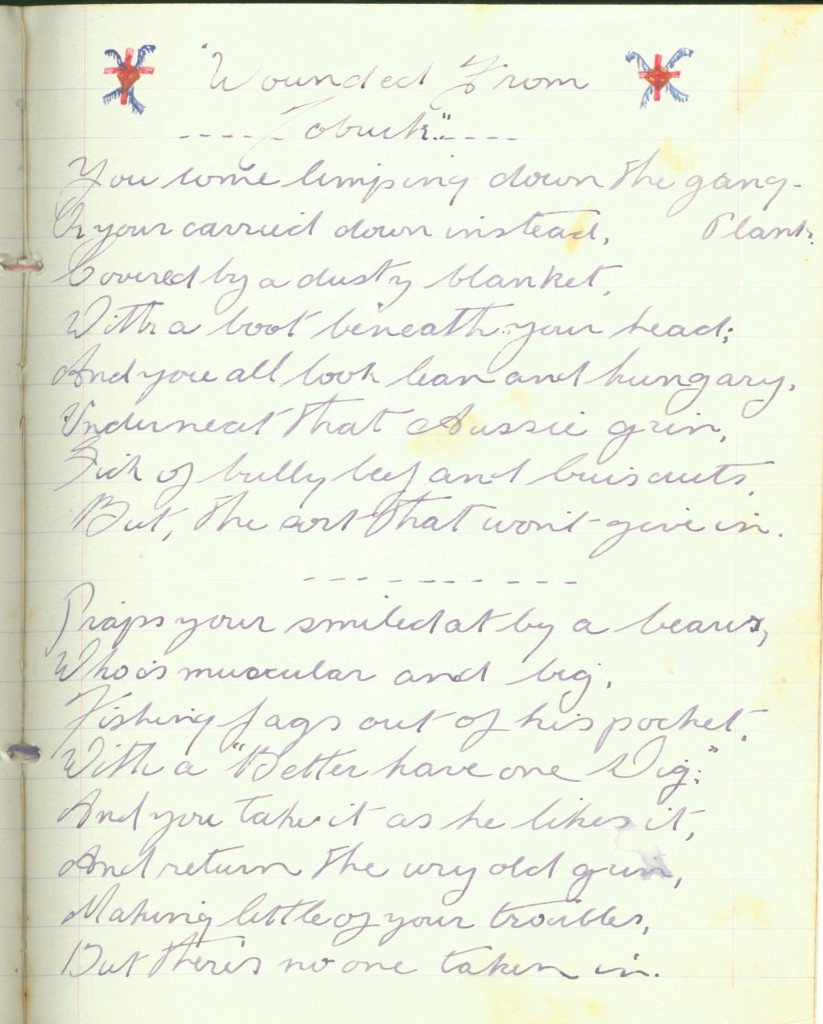 "Wounded From
----Tobruk."----
You come limping down the gang-
Or your carried down instead, Plank.
Covered by a dusty blanket,
With a boot beneath your head;
And you all look lean and hungary,
Underneat that Aussie grin,
Sick of bully beef and buiscuts,
But, the sort that won't give in.
-----------
Praps your smiled at by a bearer,
Who is muscular and big,
Fishing fags out of his pocket.
With a "Better have one Dig."
And you take it as he likes it,
And return the wry old grin,
Making little of your troubles,
But there's no one taken in.